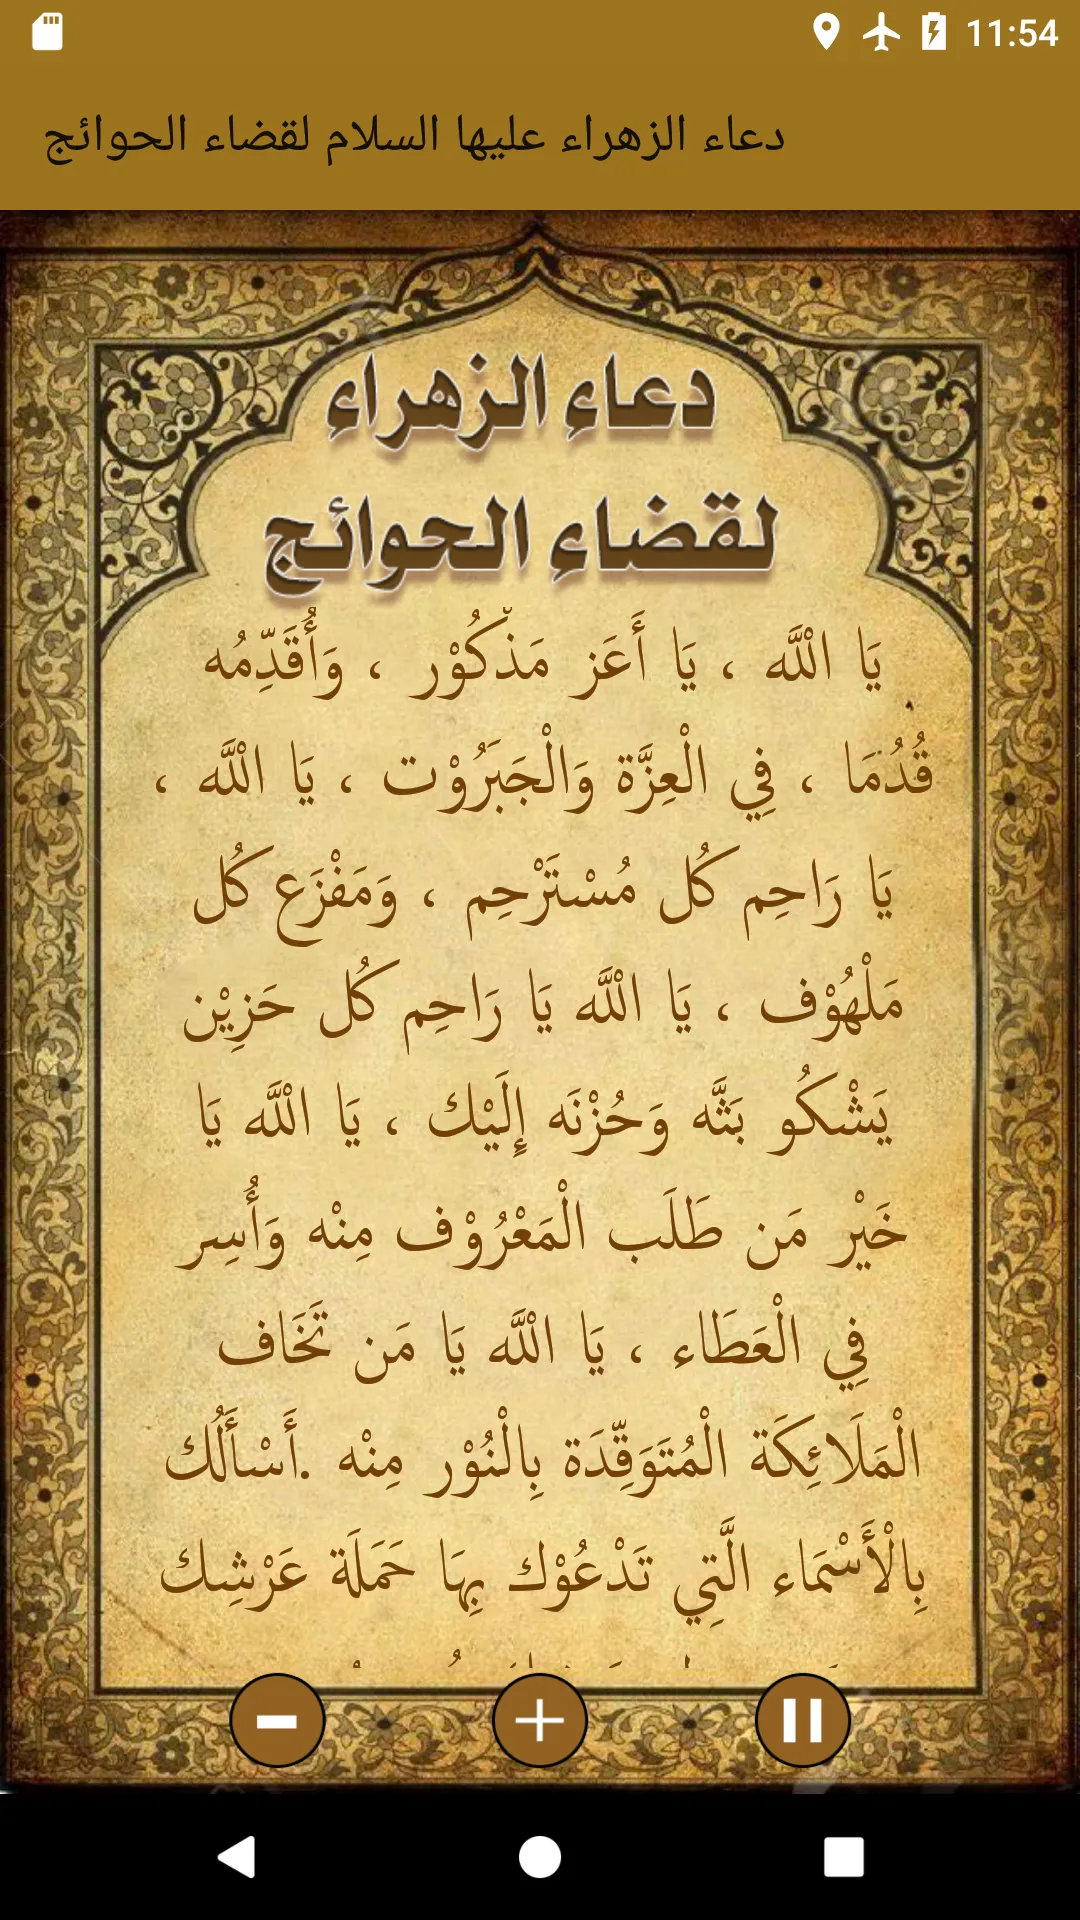 11:54
دعاء الزهراء عليها السلام لقضاء الحوائج
دعاء الزهراء
لقضاء الحوائج
يَا الْلَّه ، يَا أَعَز مَذْكُوْر ، وَأُقَدِّمُه
قُدُمَا ، فِي الْعِزَّة وَالْجَبَرُوْت ، يَا الْلَّه ،
يَا رَاحِم كُل مُسْتَرْحِم ، وَمَفْزَع كُل
مَلْهُوْف ، يَا الْلَّه يَا رَاحِم كُل حَزِيْن
يَشْكُو بَثَّه وَحُزْنَه إِلَيْك ، يَا الْلَّه يَا
خَيْر مَن طَلَب الْمَعْرُوْف مِنْه وَأُسِر
فِي الْعَطَاء ، يَا الْلَّه يَا مَن تَخَاف
الْمَلَائِكَة الْمُتَوَقِّدَة بِالْنُوْر مِنْه .أَسْأَلُك
بِالْأَسْمَاء الَّتِي تَدْعُوْك بِهَا حَمَلَة عَرْشِك